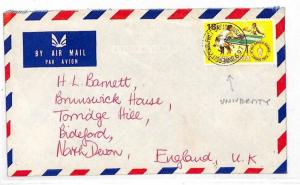 BY AIR MAIL
PAR AVION
H.L. Barnett,
Brunswick House,
Torridge Hill,
Bideford,
North Devon,
England, U.K
UNIVERSITY